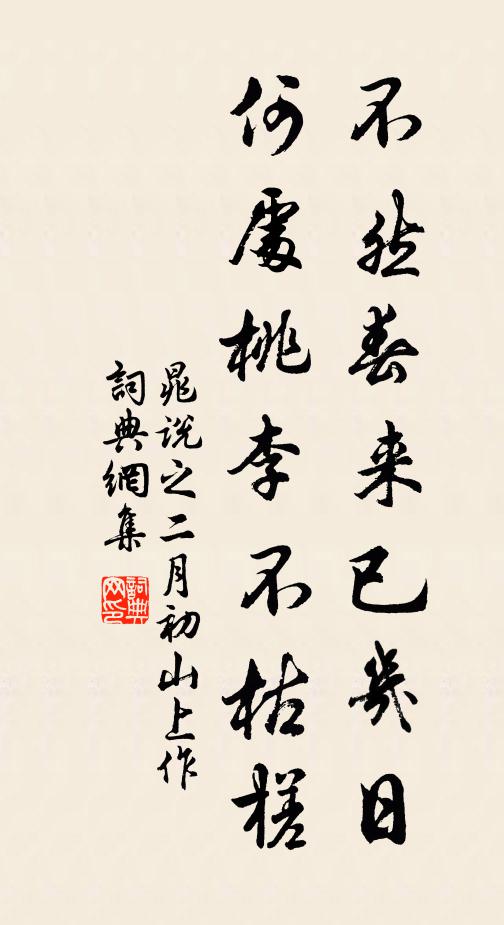 不然春来已幾日
何處桃李不枯槎
晁説之二月初山上作
詞典網集
詞典网印